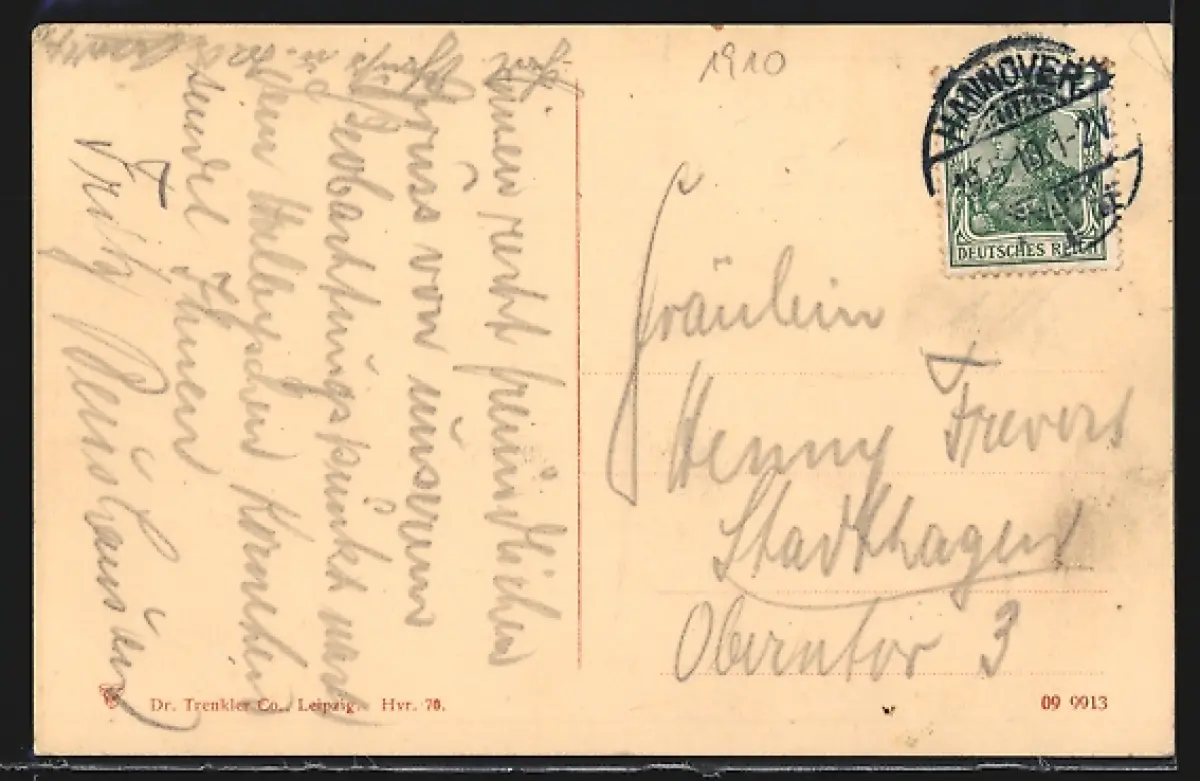 1910
HANNOVER
15.5.10. 1-2N.
DEUTSCHES REICH
Einen recht freundlichen
Gruss von unserem
Beobachtungspunkt nach
dem Halleyschen Kometen
sendet Ihnen
Fritz
Fräulein
Henny Frevert
Stadthagen
Oberntor 3
Dr. Trenkler Co., Leipzig. Hvr. 70.
09 9913